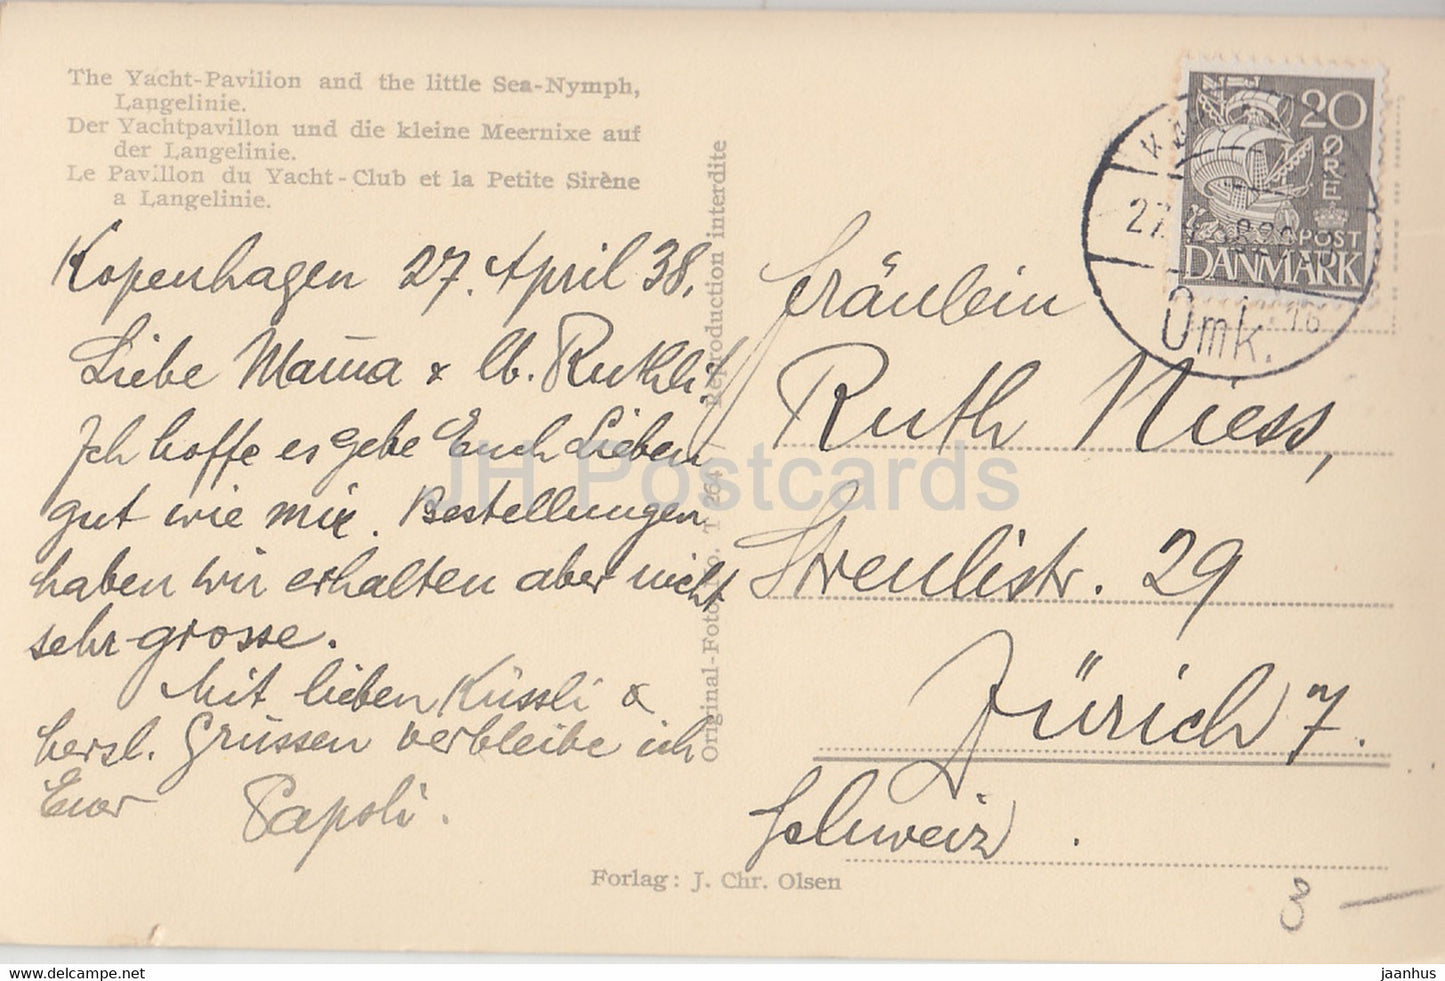 The Yacht-Pavilion and the little Sea-Nymph,
Langelinie.
Der Yachtpavillon und die kleine Meernixe auf
der Langelinie.
Le Pavillon du Yacht-Club et la Petite Sirène
a Langelinie.
Kopenhagen 27. April 38.
Liebe Mama & lb. Ruthli!
Ich hoffe es gehe Euch Lieben
gut wie mir. Bestellungen
haben wir erhalten aber nicht
sehr grosse.
Mit lieben Küssli &
herzl. Grüssen verbleibe ich
Euer Papoli.
Original-Foto. No. T 264 / Reproduction interdite
Fräulein
Ruth Niess,
Streulistr. 29
Zürich 7.
Schweiz.
20
ØRE
POST
DANMARK
27.
Omk. 16
Forlag: J. Chr. Olsen
8 —
JH Postcards
www.delcampe.net
jaanhus